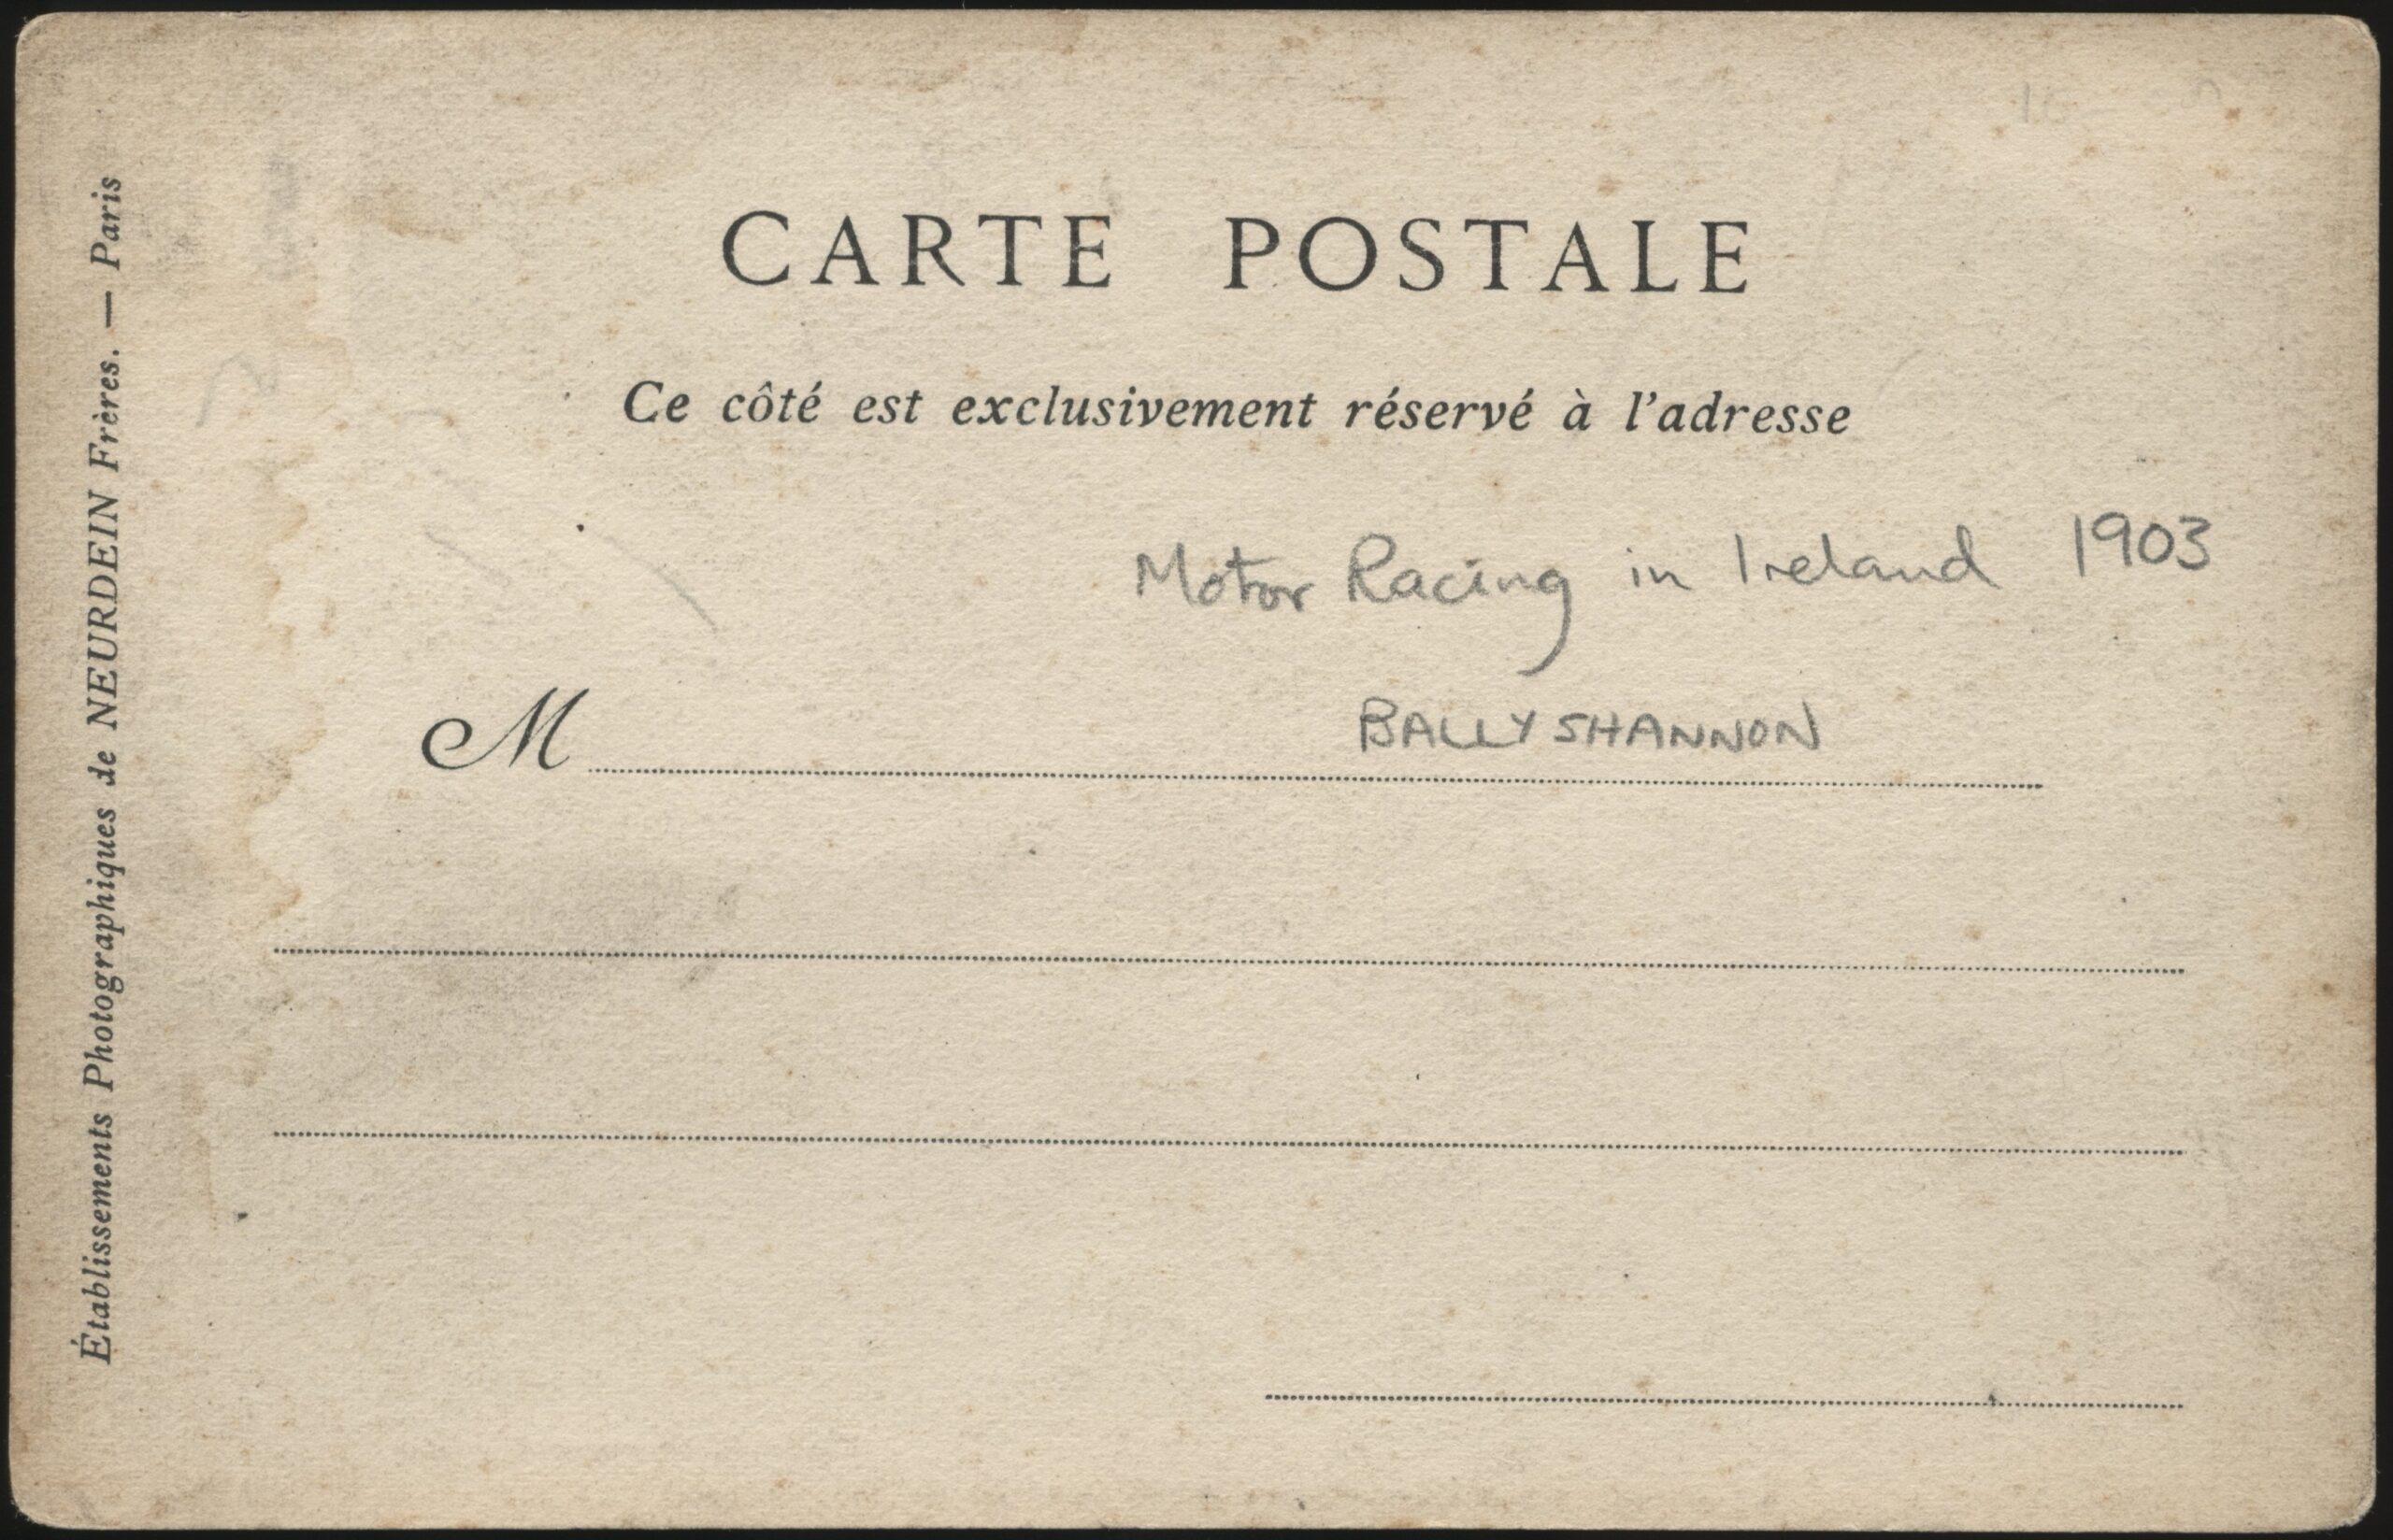 CARTE POSTALE
Ce côté est exclusivement réservé à l'adresse
Motor Racing in Ireland 1903
M BALLYSHANNON
Établissements Photographiques de NEURDEIN Frères. — Paris